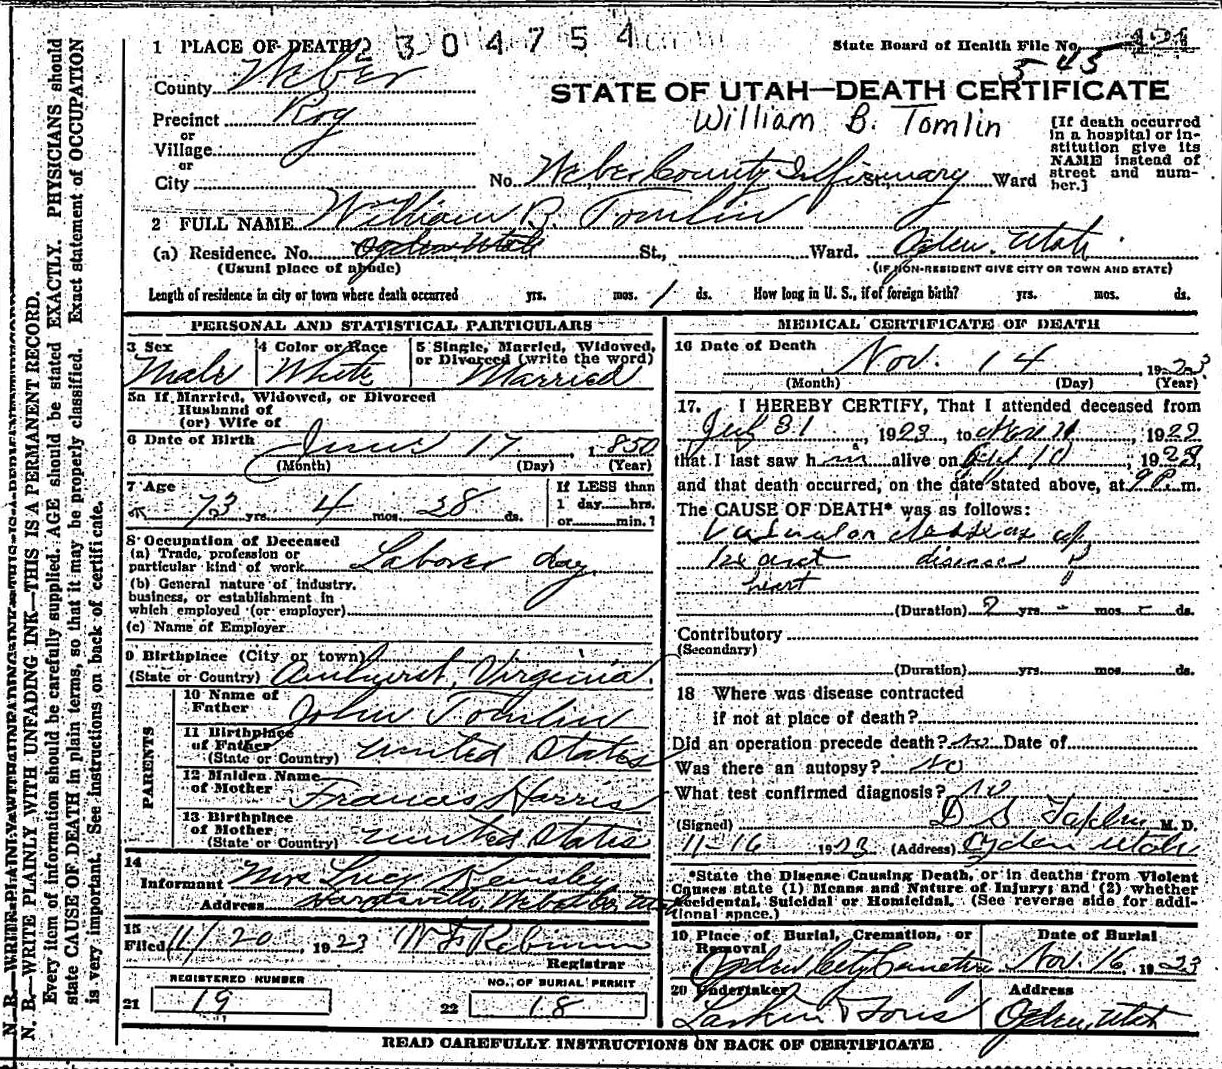 1 PLACE OF DEATH
304754
State Board of Health File No. 424
543
County Weber
STATE OF UTAH—DEATH CERTIFICATE
Precinct Roy
William B. Tomlin
or
Village
or
City
No. Weber County Infirmary St., Ward
[If death occurred in a hospital or institution give its NAME instead of street and number.]
2 FULL NAME William B. Tomlin
(a) Residence. No. Ogden Utah St., Ward. Ogden, Utah.
(Usual place of abode) (IF NON-RESIDENT GIVE CITY OR TOWN AND STATE)
Length of residence in city or town where death occurred yrs. mos. 1 ds. How long in U. S., if of foreign birth? yrs. mos. ds.
PERSONAL AND STATISTICAL PARTICULARS
3 Sex Male
4 Color or Race White
5 Single, Married, Widowed, or Divorced (write the word) Married
5a If Married, Widowed, or Divorced
Husband of
(or) Wife of
6 Date of Birth June 17, 1850
(Month) (Day) (Year)
7 Age 73 yrs. 4 mos. 28 ds.
If LESS than
1 day hrs.
or min.?
8 Occupation of Deceased
(a) Trade, profession or
particular kind of work Laborer day.
(b) General nature of industry,
business, or establishment in
which employed (or employer)
(c) Name of Employer
9 Birthplace (City or town)
(State or Country) Amhurst, Virginia.
PARENTS
10 Name of
Father John Tomlin
11 Birthplace
of Father
(State or Country) United States
12 Maiden Name
of Mother Frances Harris
13 Birthplace
of Mother
(State or Country) United States
14
Informant Mrs Lucy
Address Weber Co. Utah
15
Filed 11/20, 1923
Registrar
REGISTERED NUMBER
21 19
NO. OF BURIAL PERMIT
22 18
MEDICAL CERTIFICATE OF DEATH
16 Date of Death Nov. 14, 1923
(Month) (Day) (Year)
17. I HEREBY CERTIFY, That I attended deceased from
July 31, 1923, to Nov, 192
that I last saw him alive on 10, 1923,
and that death occurred, on the date stated above, at 9 P. m.
The CAUSE OF DEATH* was as follows:
disease
heart
(Duration) 2 yrs. - mos. - ds.
Contributory
(Secondary)
(Duration) yrs. mos. ds.
18 Where was disease contracted
if not at place of death?
Did an operation precede death? No Date of
Was there an autopsy? No
What test confirmed diagnosis? No
(Signed) D S M. D.
11-16 1923 (Address) Ogden Utah
*State the Disease Causing Death, or in deaths from Violent
Causes state (1) Means and Nature of Injury; and (2) whether
Accidental, Suicidal or Homicidal. (See reverse side for addi-
tional space.)
19 Place of Burial, Cremation, or
Removal
Ogden City Cemetery
Date of Burial
Nov. 16, 1923
20 Undertaker
Larkin & Sons
Address
Ogden, Utah
READ CAREFULLY INSTRUCTIONS ON BACK OF CERTIFICATE
N. B.—WRITE PLAINLY WITH UNFADING INK—THIS IS A PERMANENT RECORD.
Every item of information should be carefully supplied. AGE should be stated EXACTLY. PHYSICIANS should
state CAUSE OF DEATH in plain terms, so that it may be properly classified. Exact statement of OCCUPATION
is very important. See instructions on back of certificate.